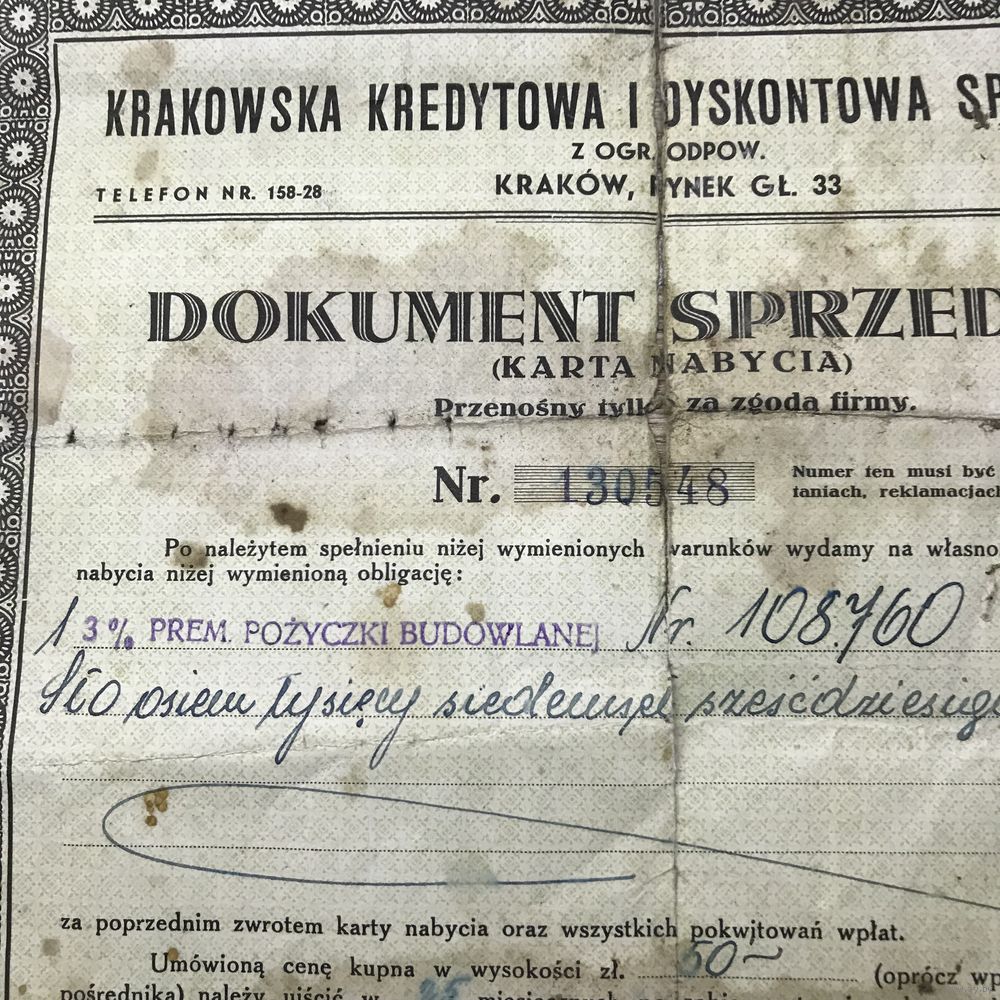 KRAKOWSKA KREDYTOWA I DYSKONTOWA SP
Z OGR. ODPOW.
TELEFON NR. 158-28
KRAKÓW, RYNEK GŁ. 33
DOKUMENT SPRZED
(KARTA NABYCIA)
Przenośny tylko za zgodą firmy.
Nr. 130548
Numer ten musi być
taniach, reklamacjach
Po należytem spełnieniu niżej wymienionych warunków wydamy na własno
nabycia niżej wymienioną obligację:
1 3% PREM. POŻYCZKI BUDOWLANEJ Nr. 108.760
Sto osiem tysięcy siedemset sześćdziesiąt
za poprzednim zwrotem karty nabycia oraz wszystkich pokwitowań wpłat.
Umówioną cenę kupna w wysokości zł. 50~ (oprócz wp
pośrednika) należy uiścić w